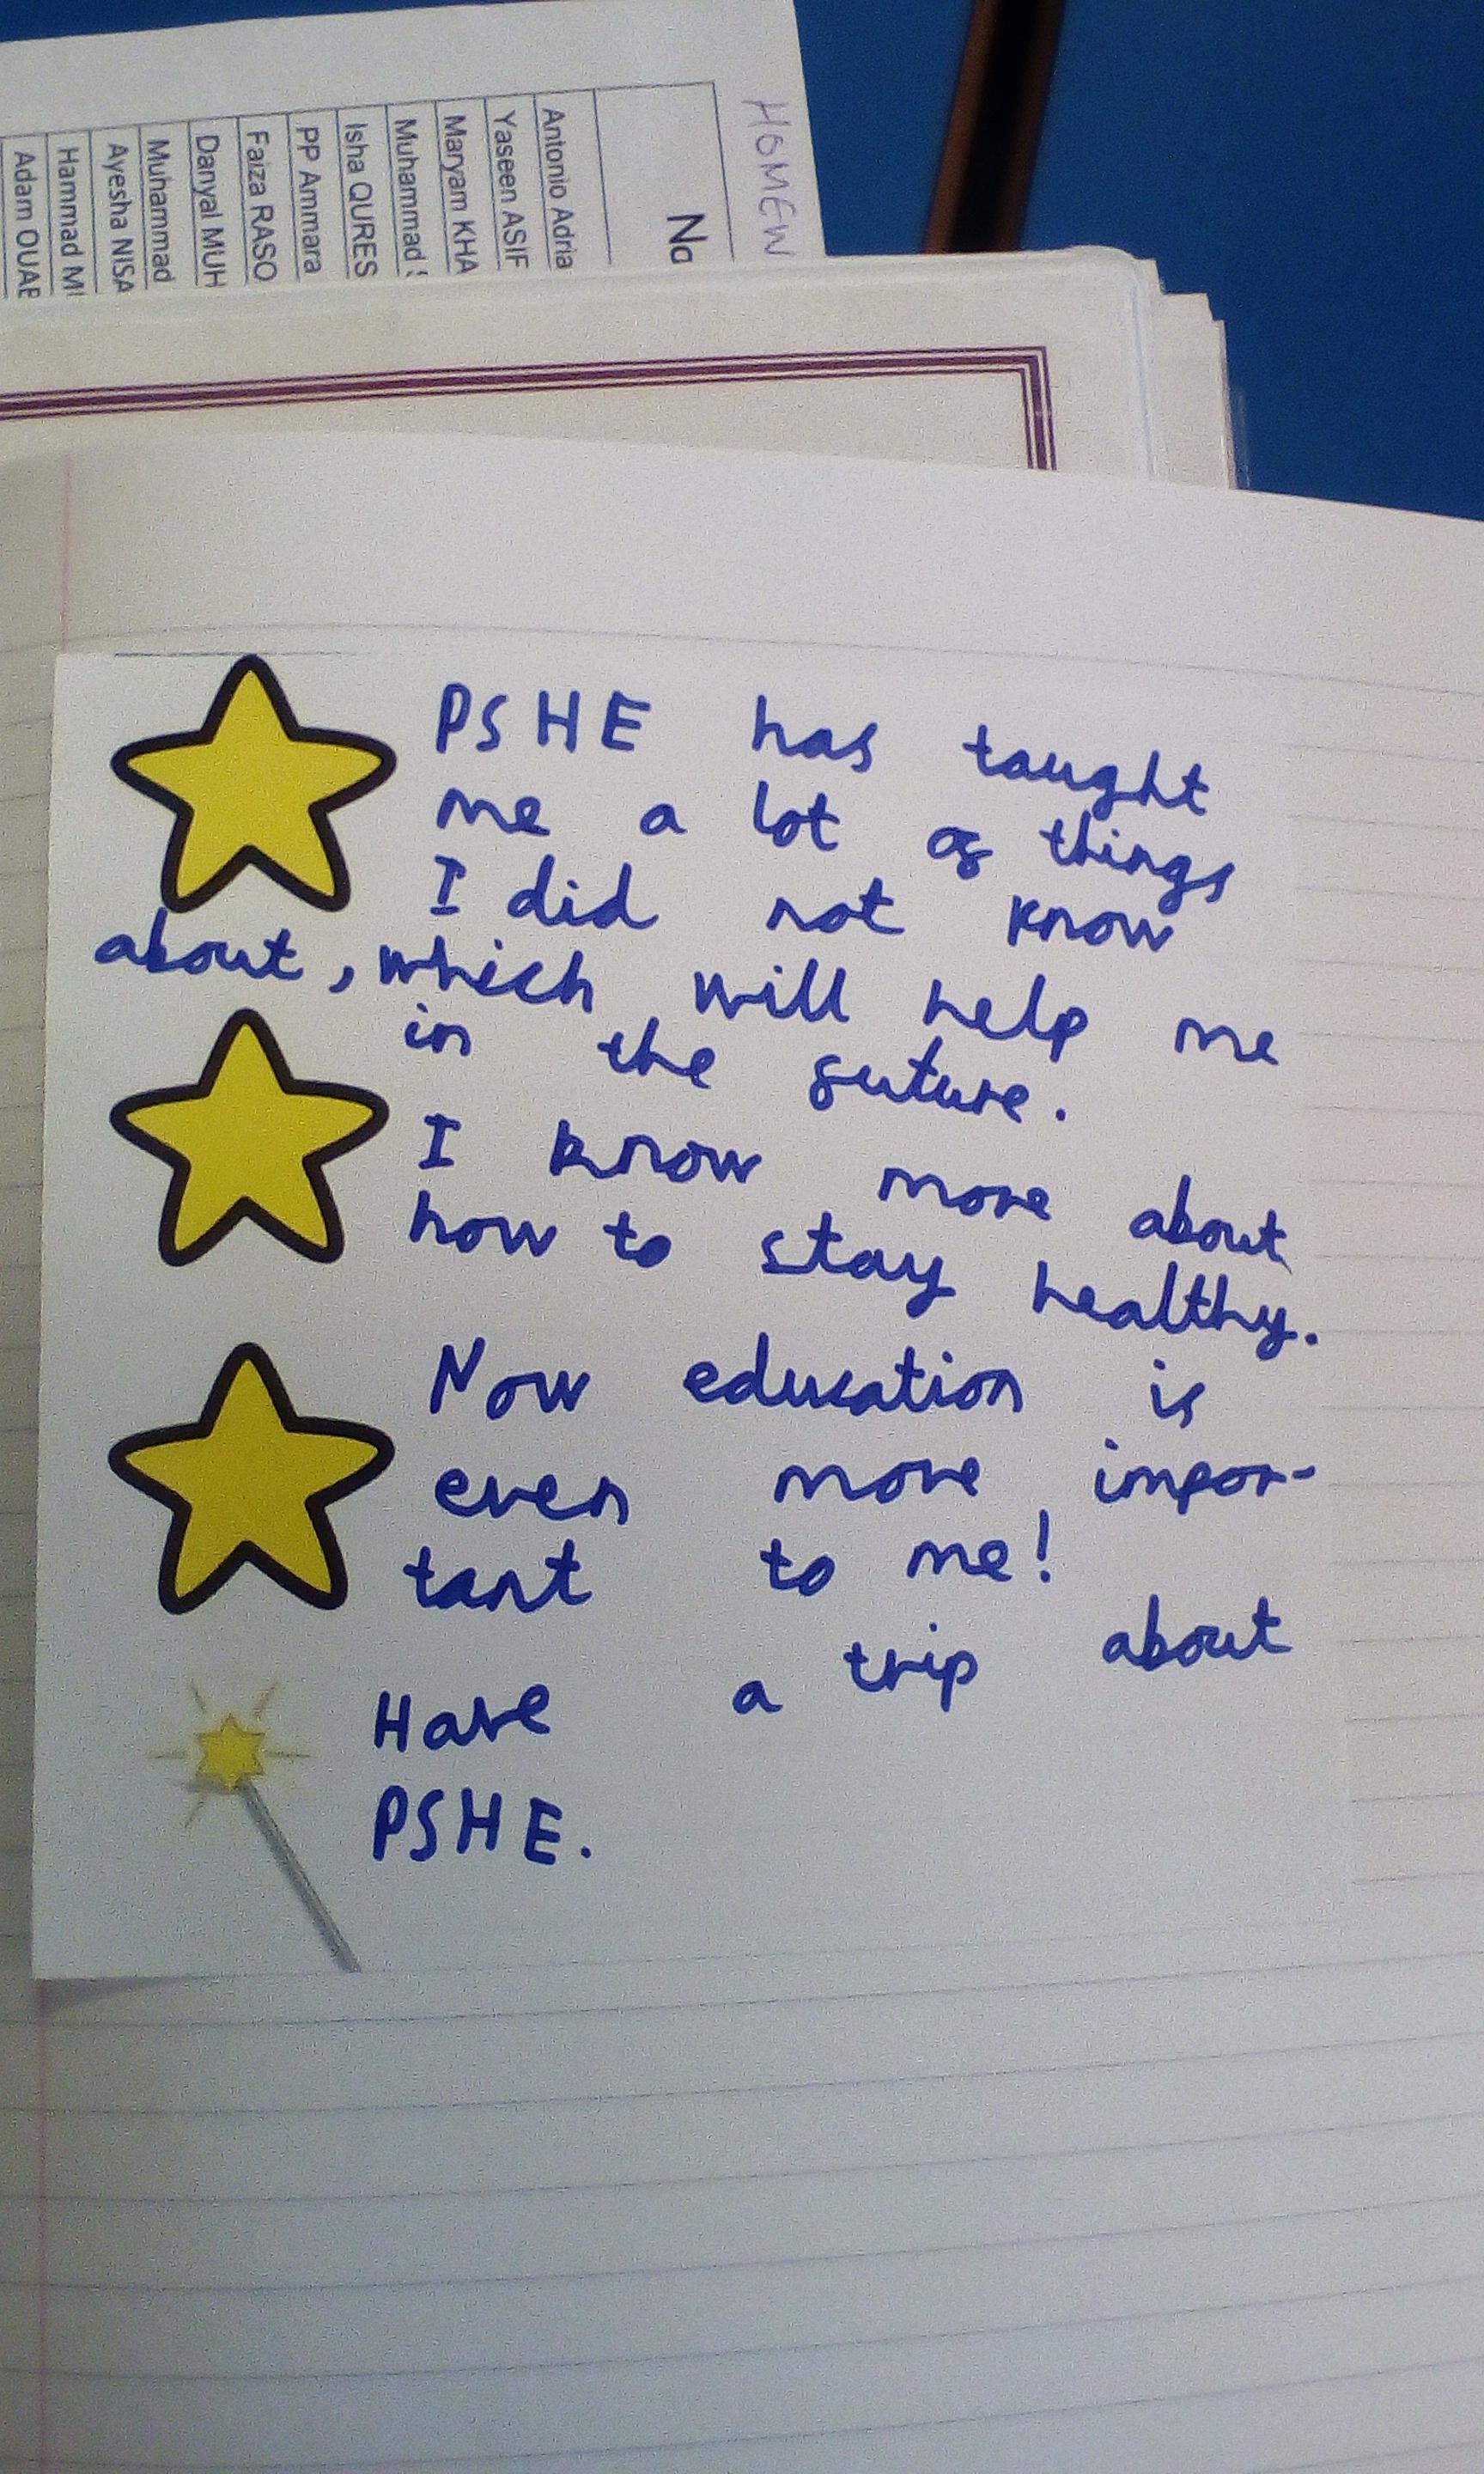 HOMEW
Na
Antonio Adria
Yaseen ASIF
Maryam KHA
Muhammad S
Isha QURES
PP Ammara
Faiza RASO
Danyal MUH
Muhammad
Ayesha NISA
Hammad M
Adam OUAB
PSHE has taught
me a lot of things
I did not know
about, which will help me
in the future.
I know more about
how to stay healthy.
Now education is
even more impor-
tant to me!
Have a trip about
PSHE.